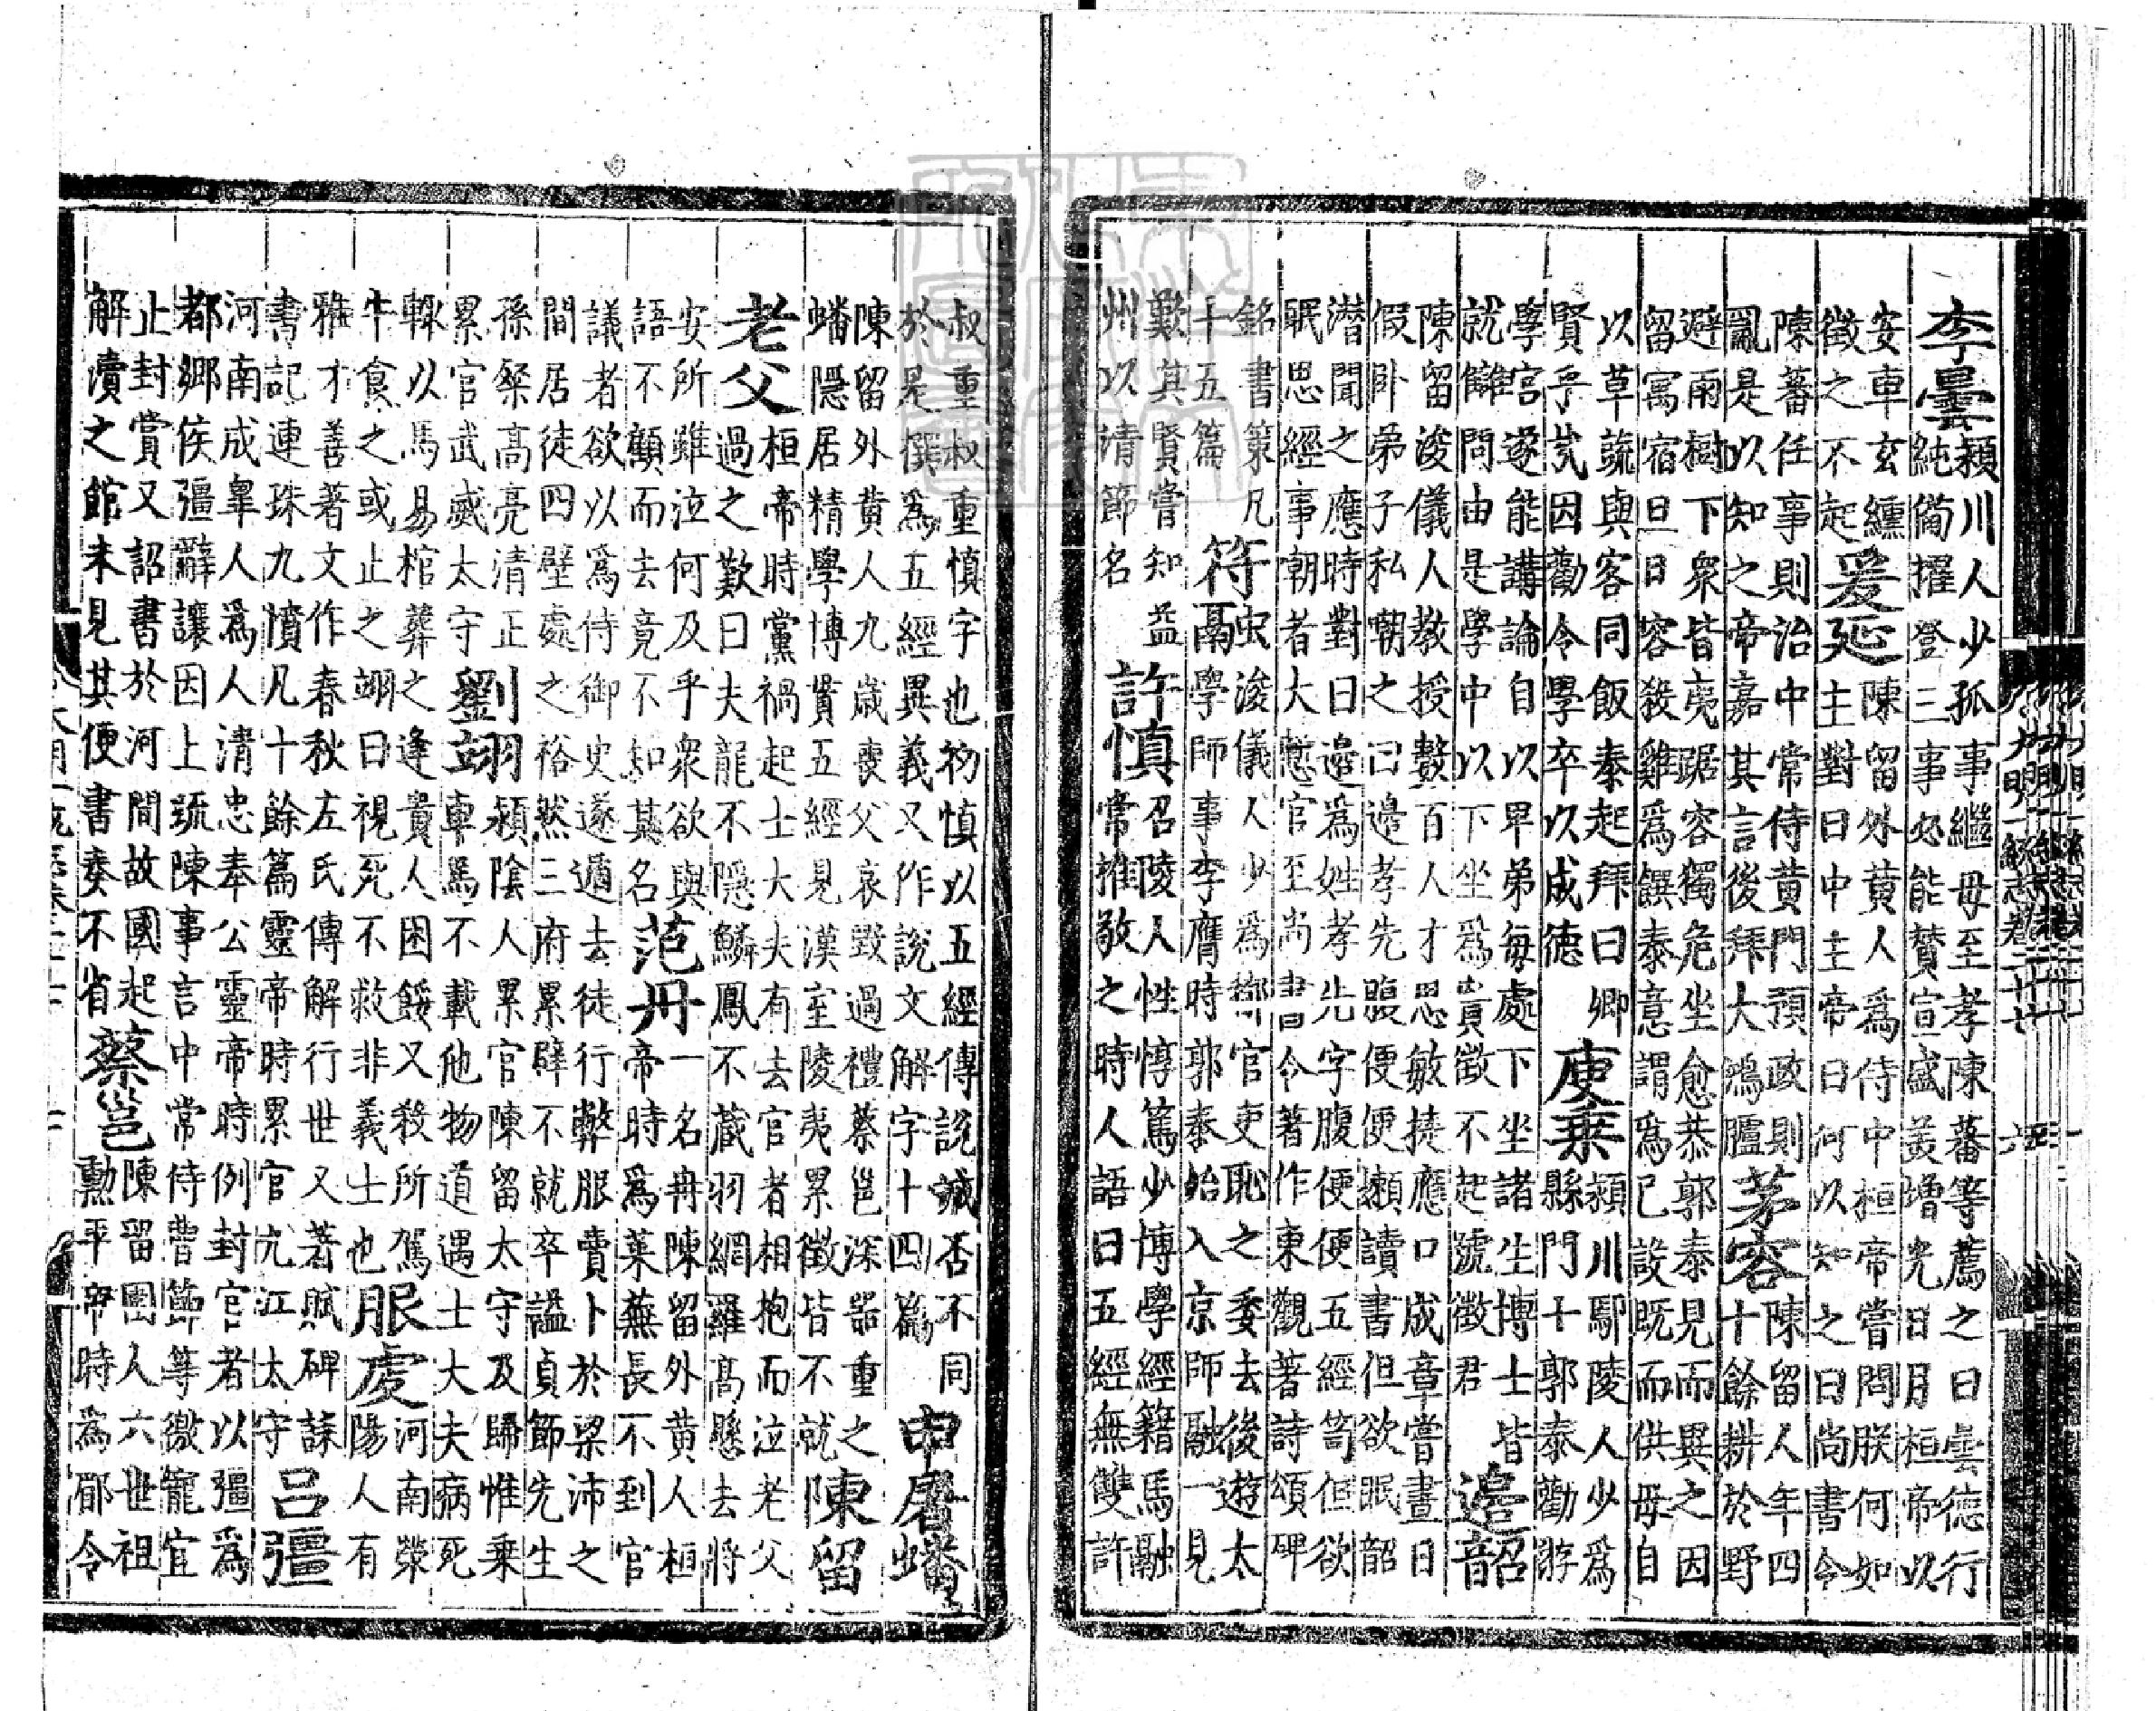 李曇潁川人少孤事繼母至孝陳蕃等薦之曰曇德行
純備擢登三事必能贊宣盛美增光日月桓帝以
安車玄纁
徵之不起
爰延陳留外黃人為侍中桓帝嘗問朕何如
主對曰中主帝曰何以知之曰尚書令
陳蕃任事則治中常侍黃門預政則
亂是以知之帝嘉其言後拜大鴻臚
茅容陳留人年四
十餘耕於野
避雨樹下衆皆夷踞容獨危坐愈恭郭泰見而異之因
留寓宿旦日容殺雞為饌泰意謂為己設既而供母自
以草蔬與客同飯泰起拜曰卿
賢乎哉因勸令學卒以成德
庾乗潁川鄢陵人少為
縣門十郭泰勸游
學宮遂能講論自以早弟每處下坐諸生博士皆
就讎問由是學中以下坐為貴徵不起號徵君
邊韶
陳留浚儀人教授數百人才思敏捷應口成章嘗晝日
假卧弟子私嘲之曰邊孝先腹便便嬾讀書但欲眠韶
潜聞之應時對曰邊為姓孝先字腹便便五經笥但欲
眠思經事朝者大慙官至尚書令著作東觀著詩頌碑
銘書策凡
十五篇
符融浚儀人少為鄉官吏恥之委去後遊太
學師事李膺時郭泰始入京師融一見
歎其賢嘗知益
州以清節名
許慎召陵人性惇篤少博學經籍馬融
常推敬之時人語曰五經無雙許
叔重叔重慎字也初慎以五經傳說臧否不同
於是撰為五經異義又作說文解字十四篇
申屠蟠
陳留外黃人九歲喪父哀毀過禮蔡邕深器重之
蟠隱居精學博貫五經見漢室陵夷累徵皆不就
陳留
老父桓帝時黨禍起士大夫有去官者相抱而泣老父
過之歎曰夫龍不隱鱗鳳不蔵羽網羅高懸去將
安所雖泣何及乎衆欲與
語不顧而去竟不知其名
范冊一名冉陳留外黃人桓
帝時為萊蕪長不到官
議者欲以為侍御史遂遁去徒行弊服賣卜於梁沛之
間居徒四壁處之裕然三府累辟不就卒謚貞節先生
孫粲高亮清正
累官武威太守
劉翊潁陰人累官陳留太守及歸惟乗
車馬不載他物道遇士大夫病死
輙以馬易棺葬之逢貴人困餒又殺所駕
牛食之或止之翊曰視死不救非義士也
服虔河南滎
陽人有
雅才善著文作春秋左氏傳解行世又著賦碑誄
書記連珠九憤凡十餘篇靈帝時累官九江太守
呂彊
河南成臯人為人清忠奉公靈帝時例封宦者以彊為
都鄉侯彊辭讓因上疏陳事言中常侍曹節等徼寵宜
止封賞又詔書於河間故國起
解瀆之館未見其便書奏不省
蔡邕陳留圉人六世祖
勳平帝時為郿令